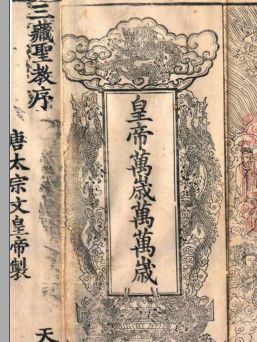 三藏聖教序
唐太宗文皇帝製
天
皇帝萬歲萬萬歲